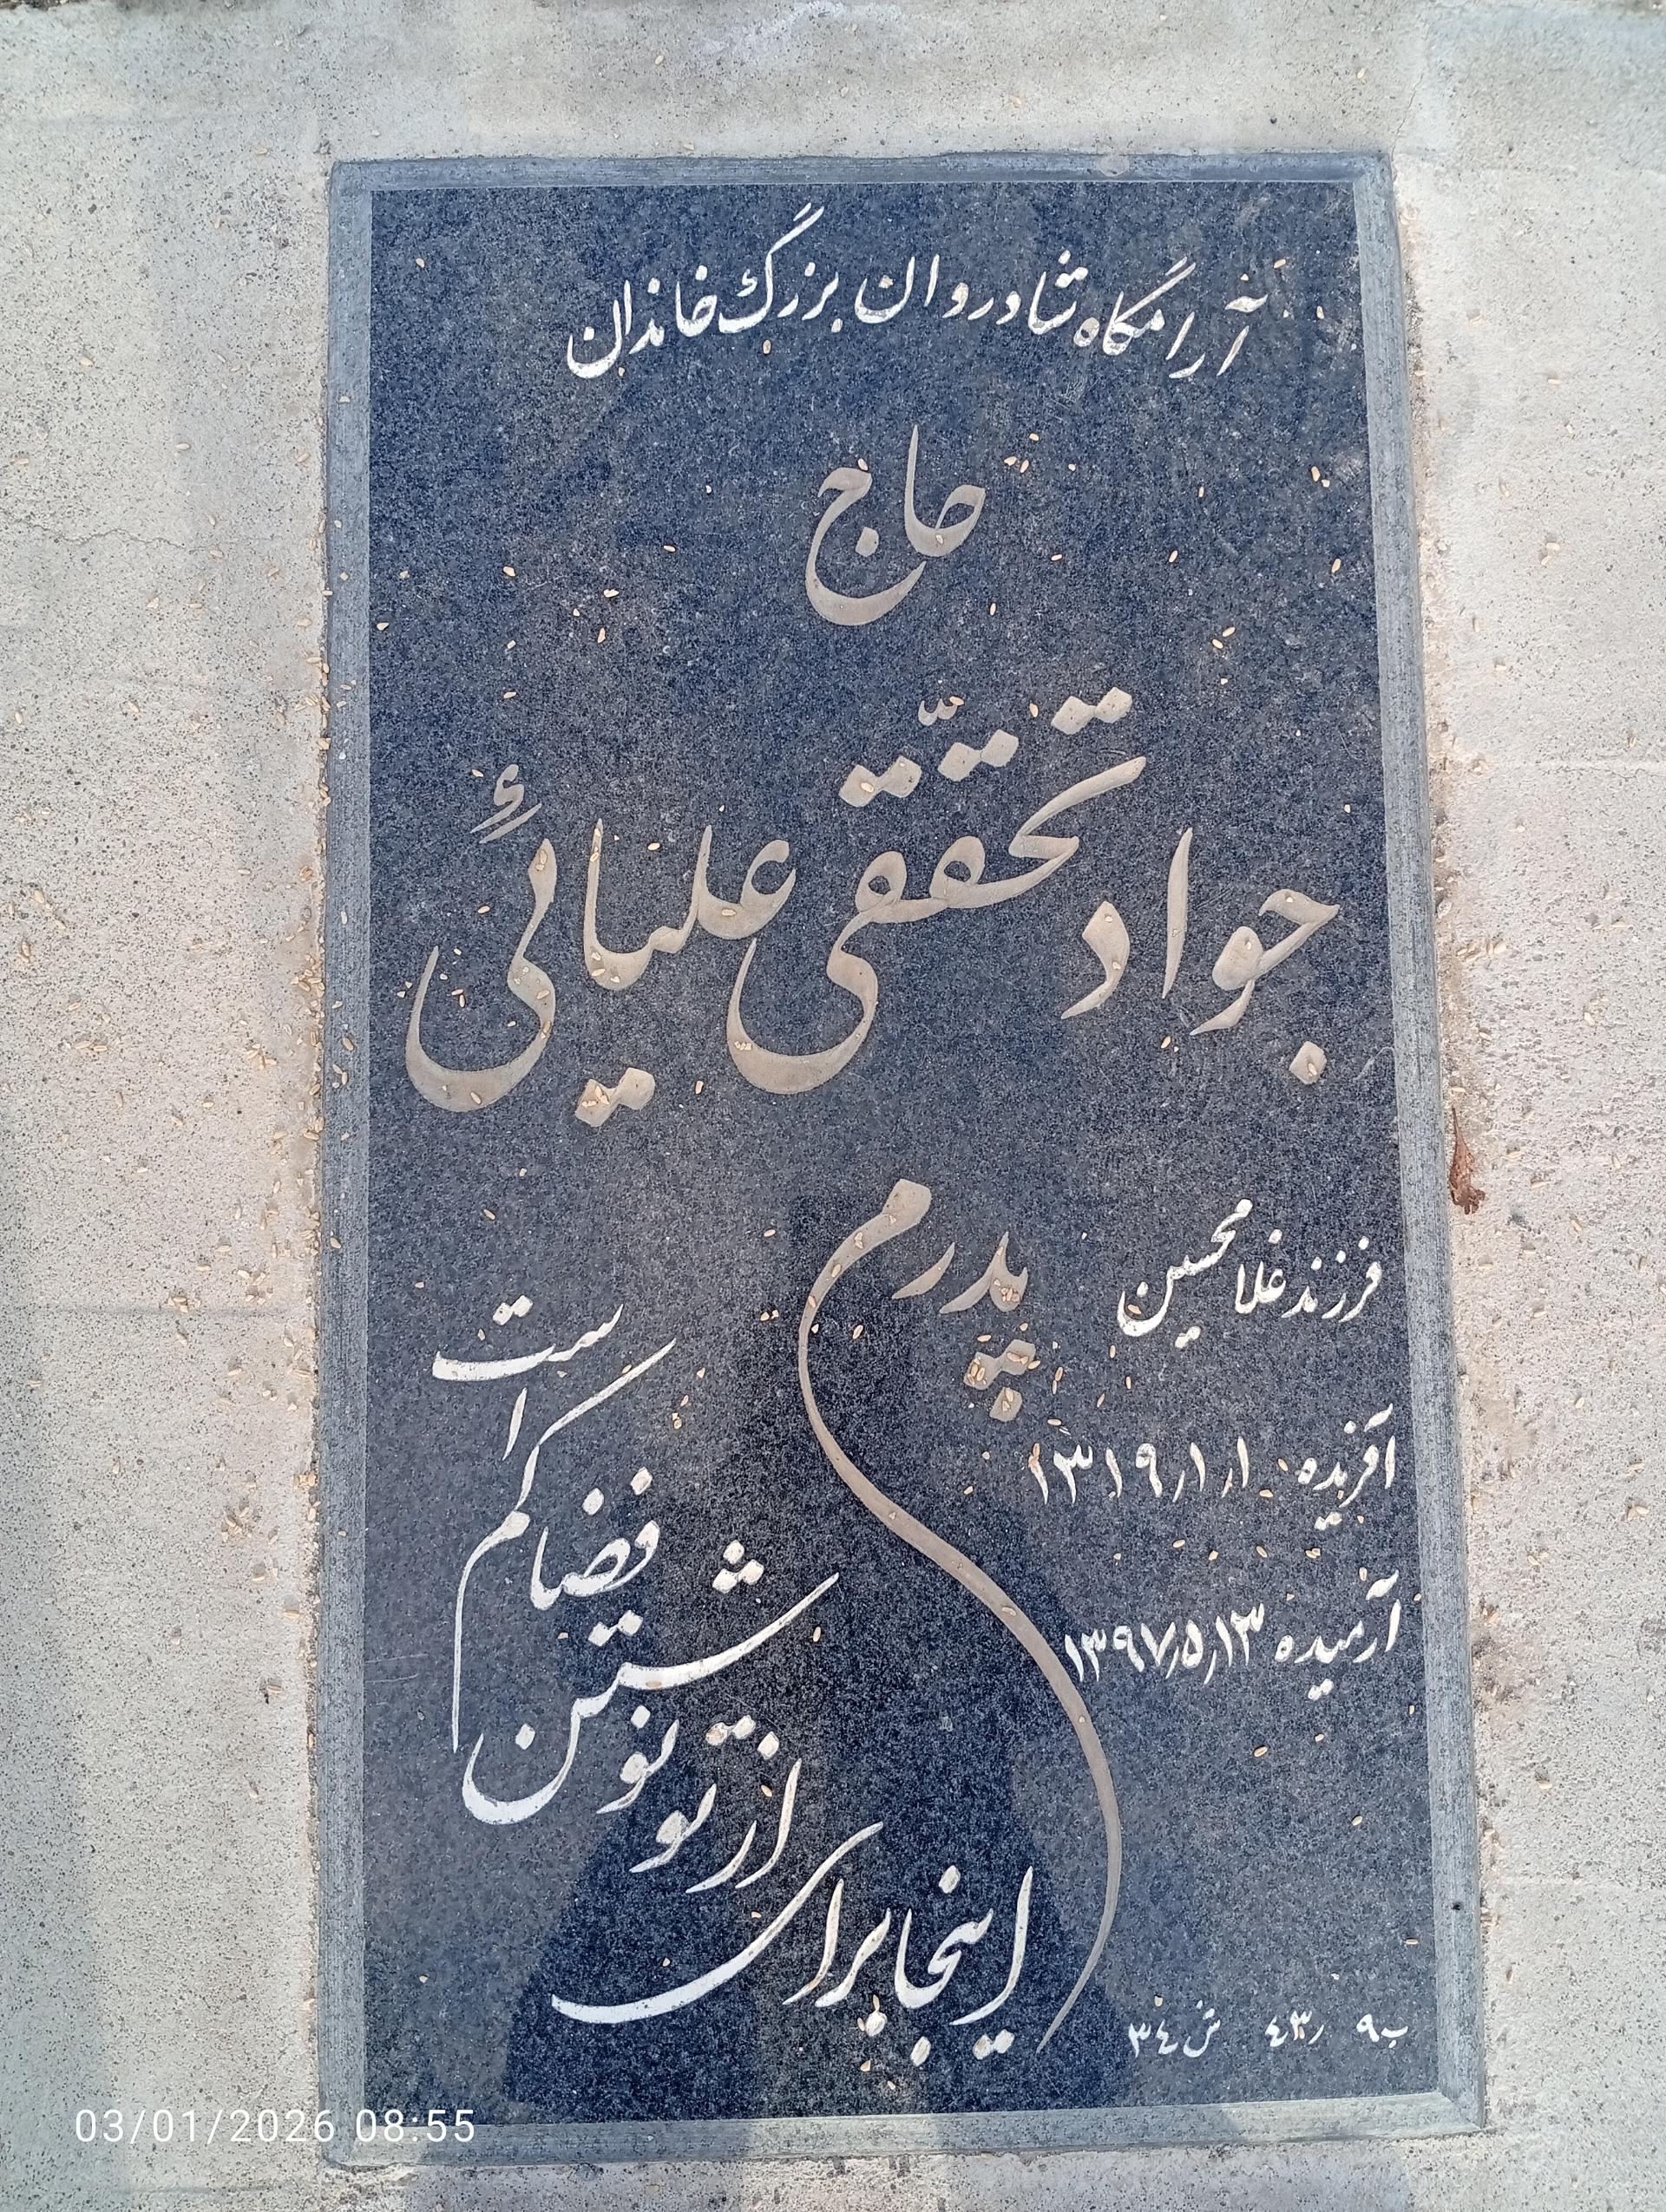 آرامگاه شادروان بزرگ خاندان
حاج
جواد تحققّی علیائی
فرزند غلامحسین
آفریده ۱۳۱۹٫۱٫۱
آرمیده ۱۳۹۷٫۵٫۱۳
پدرم
اینجا برای
از تو نوشتن
فضا کم
است
ب۹ ر۴۳ ش۳۴
03/01/2026 08:55